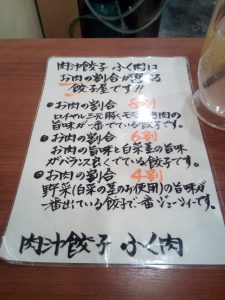 肉汁餃子 ふく肉は
お肉の割合が選べる
餃子屋です!!
●お肉の割合 8割
ロイヤル三元豚モモ肉の
旨味が一番でている餃子です。
●お肉の割合 6割
お肉の旨味と白菜茎の旨味
がバランス良くでている餃子です。
●お肉の割合 4割
野菜(白菜の茎のみ使用)の旨味が
一番出ている餃子で一番ジューシィです。
肉汁餃子 ふく肉